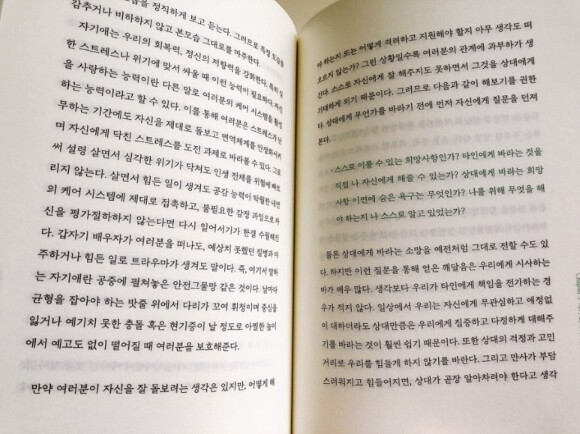 감추거나 비하하지 않고 본모습 그대로를 마주한다.
자기애는 우리의 회복력, 정신의 저항력을 강화한다. 특히 심
한 스트레스나 위기에 맞서 싸울 때 이런 능력이 필요하다. 자신
을 사랑하는 능력이란 다른 말로 여러분의 케어 시스템을 활성
하는 능력이라고 할 수 있다. 이를 통해 여러분은 스트레스가 난
무하는 기간에도 자신을 제대로 돌보고 면역체계를 안정화시키
며 자신에게 닥친 스트레스를 도전 과제로 바라볼 수 있다. 그래
써 설령 살면서 심각한 위기가 닥쳐도 인생 전체를 위협에 빠뜨
리지 않는다. 살면서 힘든 일이 생겨도 공감 능력이 탁월한 내면
의 케어 시스템에 제대로 접촉하고, 불필요한 감정 과잉으로 자
신을 평가절하하지 않는다면 다시 일어서기가 한결 수월해진
다. 갑자기 배우자가 여러분을 떠나도, 예상치 못했던 질병과 마
주하거나 힘든 일로 트라우마가 생겨도 말이다. 즉, 여기서 말하
는 자기애란 공중에 펼쳐놓은 안전그물망 같은 것이다. 날마다
균형을 잡아야 하는 밧줄 위에서 다리가 꼬여 휘청이며 중심을
잃거나 예기치 못한 충돌 혹은 현기증이 날 정도로 아찔한 높이
에서 예고도 없이 떨어질 때 여러분을 보호해준다.
만약 여러분이 자신을 잘 돌보려는 생각은 있지만, 어떻게 해
야 하는지 또는 어떻게 격려하고 지원해야 할지 아무 생각도 떠
오르지 않는가? 그런 상황일수록 여러분의 관계에 과부하가 생
긴다. 스스로 자신에게 잘 해주지도 못하면서 그것을 상대에게
기대하게 되기 때문이다. 그러므로 다음과 같이 해보기를 권한
다. 상대에게 무언가를 바라기 전에 먼저 자신에게 질문을 던져
본다.
•스스로 이룰 수 있는 희망사항인가? 타인에게 바라는 것을
직접 나 자신에게 해줄 수 있는가? 상대에게 바라는 희망
사항 이면에 숨은 욕구는 무엇인가? 나를 위해 무엇을 해
야 하는지 나 스스로 알고 있었는가?
물론 상대에게 바라는 소망을 예전처럼 그대로 전할 수도 있
다. 하지만 이런 질문을 통해 얻은 깨달음은 우리에게 시사하는
바가 매우 많다. 생각보다 우리가 타인에게 책임을 전가하는 경
우가 적지 않다. 일상에서 우리는 자신에게 무관심하고 애정없
이 대하더라도 상대만큼은 우리에게 집중하고 다정하게 대해주
기를 바라는 것이 훨씬 쉽기 때문이다. 또한 상대의 걱정과 고민
거리로 우리를 힘들게 하지 않기를 바란다. 그리고 만사가 부담
스러워지고 힘들어지면, 상대가 곧장 알아차려야 한다고 생각